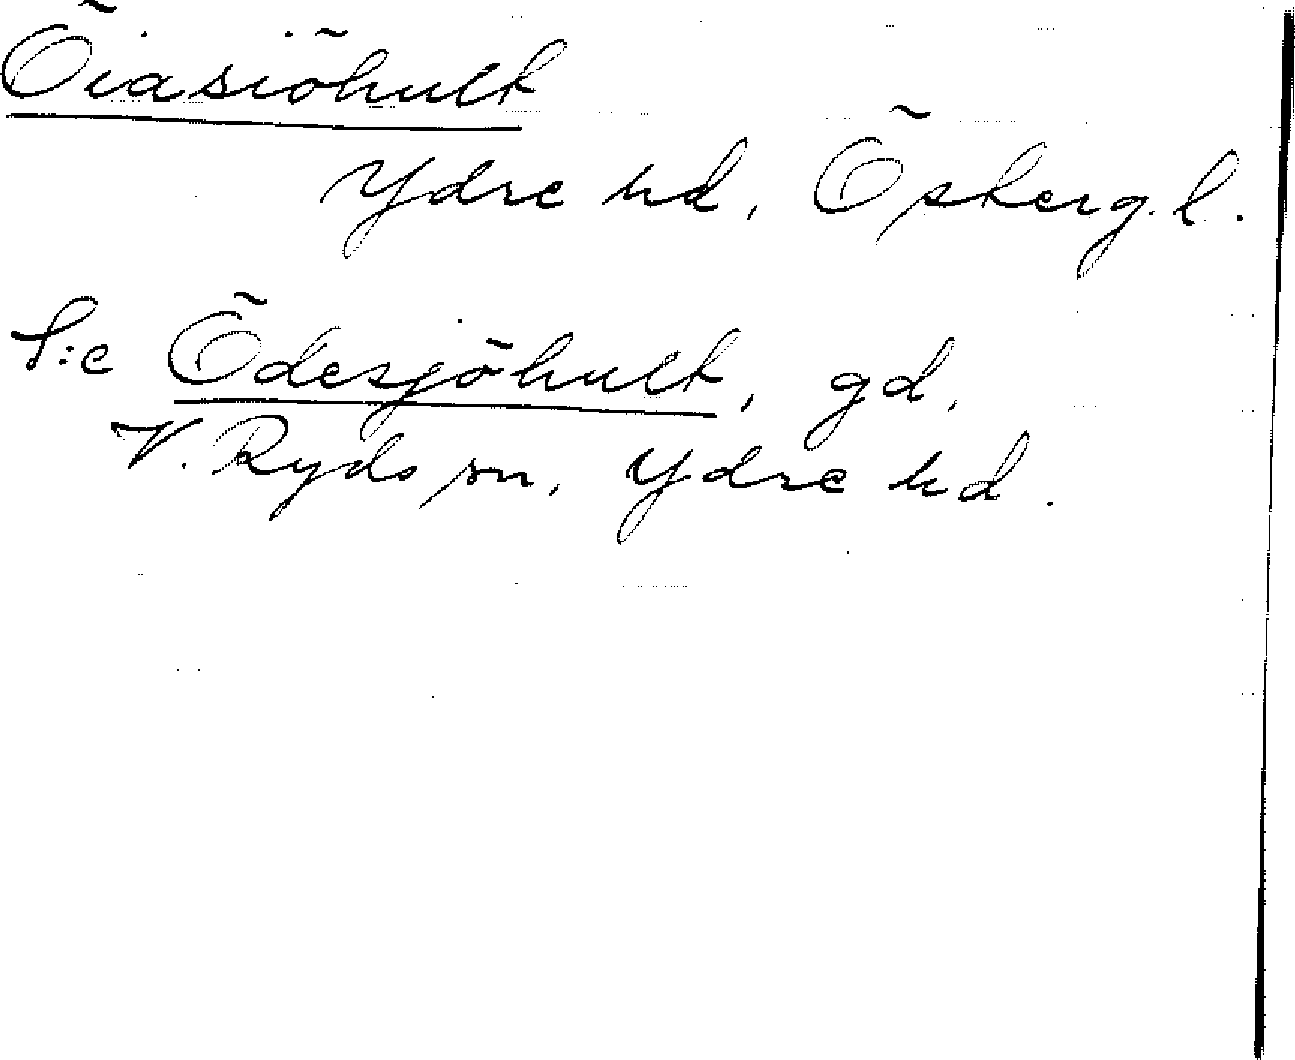 Öiasiöhult
Ydre hd, Östergl.
S:e Ödesjöhult, gd,
V. Ryds sn, Ydre hd.